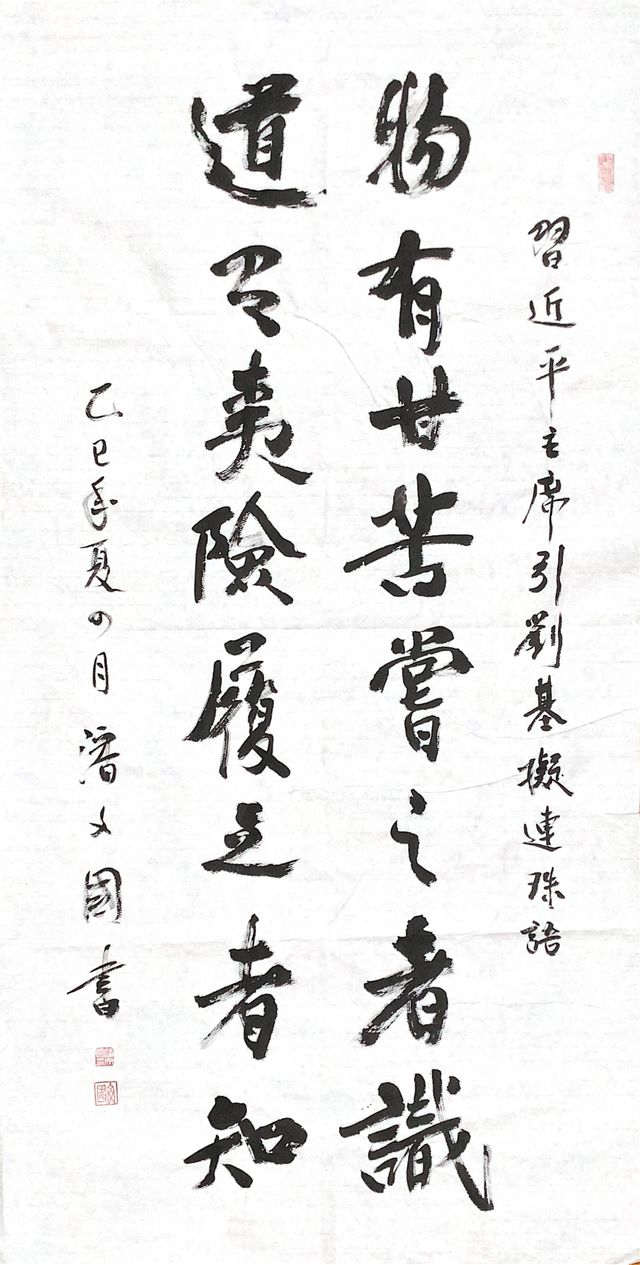 習近平主席引劉基擬連珠語
物有甘苦嘗之者識
道有夷險履之者知
乙巳年夏四月潘文國書